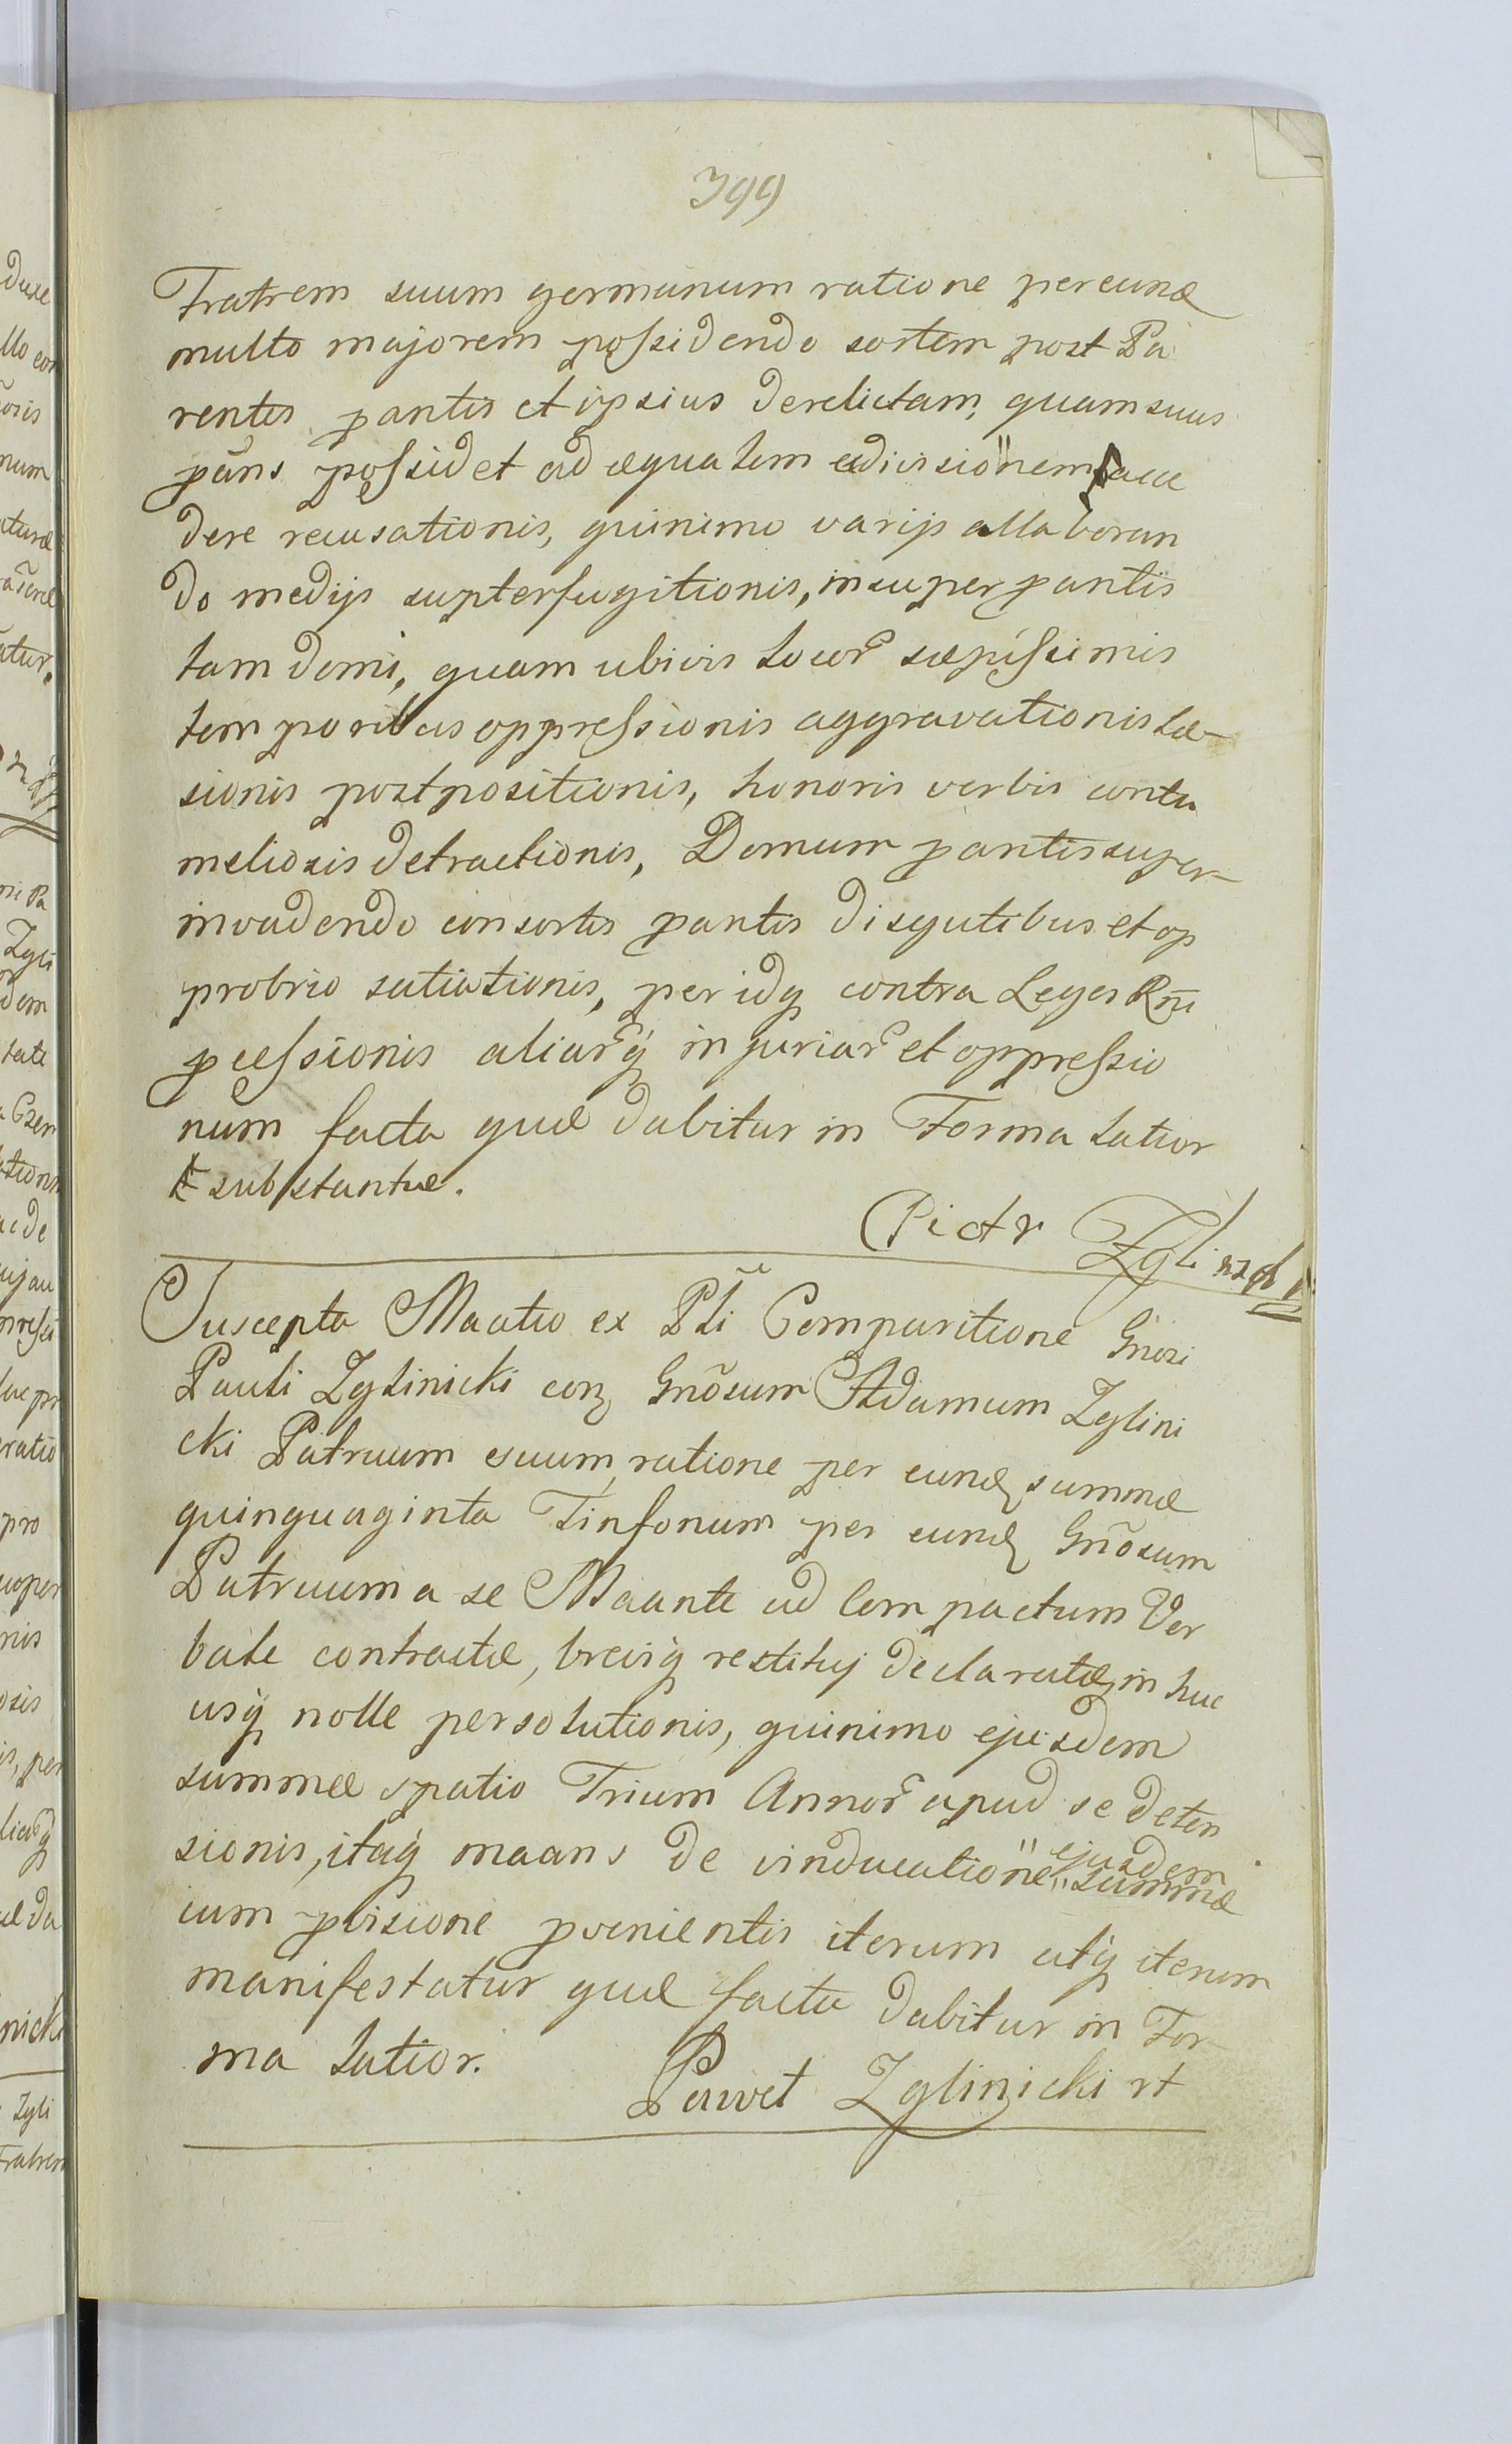 399
Fratrem suum germanum ratione per eundē
multo majorem possidendo sortem post Pa
rentes ptantis et ipsius derelictam, quam suus
ptans possidet ad æqualem edivisionem acce
dere recusationis, quinimo varijs allaboran
do medijs supterfugitionis, insuper ptantis
tam domi, quam ubivis locor sæpissimis
temporibus oppressionis aggravationis læ-
sionis postpositionis, honoris verbis contu
meliosis detractionis, Domum ptantis super-
invadendo consortis ptantis disgutibus et op
probrio satiationis, per idq contra Leges Rni
pcessionis aliarq injuriar et oppressio
num facta quæ dabitur in Forma latior
substantiæ.
Piotr Zgliniczki
Suscepta Maatio ex Pli Comparitione Gnosi
Pauli Zglinicki con Gnosum Adamum Zglini
cki Patruum suum, ratione per eund summæ
quinquaginta Tinfonum per eund Gnosum
Patruum a se Maante ad Compactum Ver
bale contractæ, breviq restituj declaratæ in huc
usq nolle persolutionis, quinimo ejusdem
summæ spatio Trium Annor apud se deten
sionis, itaq maans de vinducatione ejusdem summæ
cum pvisione pvenientis iterum atq iterum
manifestatur quæ facta dabitur in For-
ma latior.
Paweł Zglinicki